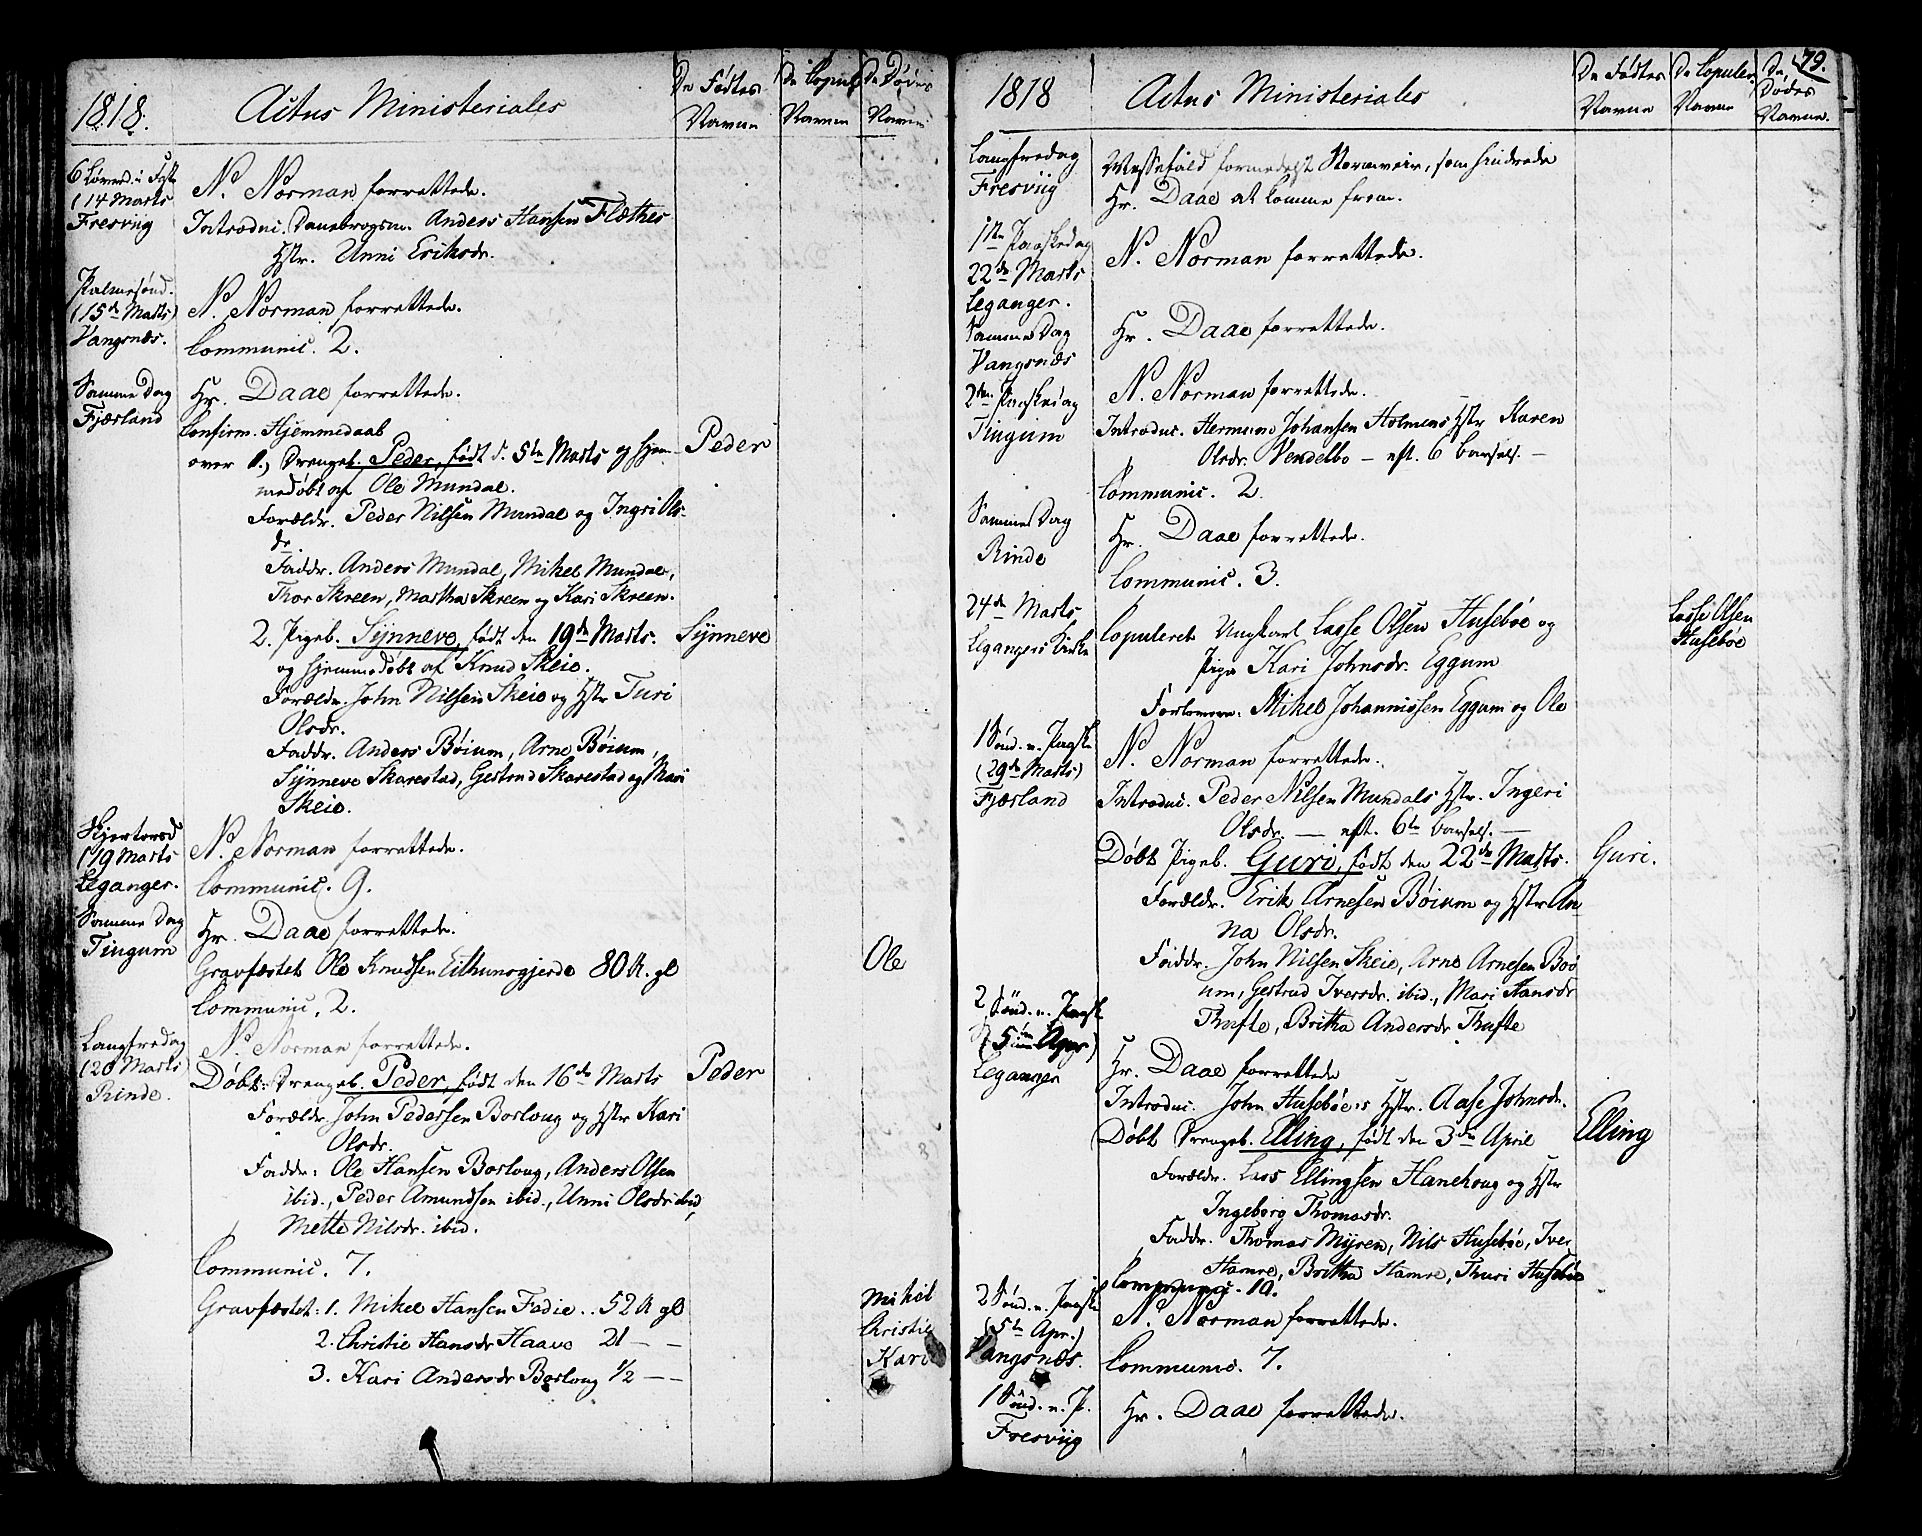 1818.
Actus Ministeriales
De Fødtes
Navne
De Copul
Navne
De Dødes
Navne
6 Løverd. i Faste
(14 Marts
Fresviig
N. Norman forrettede.
Introduc. Danebrogsm. Anders Hansen Flæthes
Hstr. Unni Eriksdr.
Palmesønd.
(15de Marts)
Vangsnæs.
N. Norman forrettede.
Communic. 2.
Samme Dag
Fjærland
Hr. Daae forrettede.
Confirm. Hjemmedaab
over 1., Drengeb. Peder, født d. 5te Marts og hjem-
medøbt af Ole Mundal.
Peder
Forældr. Peder Nilsen Mundal og Ingri Ols-
dr.
Faddr. Anders Mundal, Mikel Mundal,
Thor Skreen, Martha Skreen og Kari Skreen.
2. Pigeb. Synneve, født den 19de Marts.
Synneve
og hjemmedøbt af Knud Skeie.
Forældr. John Nilsen Skeie og Hstr Turi
Olsdr.
Faddr. Anders Bøium, Arne Bøium,
Synneve Skarestad, Gertrud Skarestad og Mari
Skeie.
Skjertorsd
(19 Marts
Leganger.
N. Norman forrettede.
Communic. 9.
Samme Dag
Tingum
Hr. Daae forrettede.
Gravfæstet Ole Knudsen Eithunsgjerde 80 A. gl
Ole
Communic. 2.
Langfredag
(20 Marts)
Rinde.
N. Norman forrettede.
Døbt: Drengeb. Peder, født den 16de Marts
Peder
Forældr. John Pedersen Borloug og Hstr Kari
Olsdr.
Faddr: Ole Hansen Borloug, Anders Olsen
ibid., Peder Amundsen ibid., Unni Olsdr ibid,
Mette Nilsdr. ibid.
Communic. 7.
Gravfæstet: 1. Mikel Hansen Fedie .. 52 A gl
Mikel
2. Christie Hansdr Haave 21 — —
Christie
3. Kari Andersdr Borloug 1/2 — —
Kari
79.
1818
Actus Ministeriales
De Fødtes
Navne
De Copuler.
Navne
De
Dødes
Navne.
Langfredag
Fresviig
Messefald formedelst Stormveir, som hindrede
Hr. Daae at komme frem.
1ste Paaskedag
22de Marts
Leganger.
N. Norman forrettede.
Samme Dag
Vangsnæs
Hr. Daae forrettede.
2den Paaskedag
Tingum
N. Norman forrettede.
Introduc. Herman Johansen Holmens Hstr Karen
Olsdr. Vendelbo — eft. 6 barsels. —
Communic. 2.
Samme Dag
Rinde
Hr. Daae forrettede.
Communic. 3.
24de Marts
Legangers Kirke
Copuleret Ungkarl Lasse Olsen Husebøe og
Pige Kari Johnsdr. Eggum
Lasse Olsen
Husebøe
Forlovere: Mikel Johannissen Eggum og Ole
1 Sønd. e. Paaske
(29de Marts)
Fjærland
N. Norman forrettede.
Introduc. Peder Nilsen Mundals Hstr. Ingeri
Olsdr. — eft. 6te barsels. —
Døbt Pigeb. Guri, født den 22de Marts.
Guri.
Forældr. Erik Arnesen Bøium og Hstr An
na Olsdr.
Faddr. John Nilsen Skeie, Arne Arnesen Bøi
um, Gertrud Iversdr. ibid., Mari Hansdr
Thufte, Britha Andersdr Thufte
2 Sønd. e. Paaske
Leganger
Hr. Daae forrettede
Introduc. John Husebøe's Hstr. Aase Johnsdr.
Døbt Drengeb. Elling, født den 3die April
Elling
Forældr. Lars Ellingsen Hanehoug og Hstr
Ingeborg Thomasdr.
Faddr. Thomas Myren, Nils Husebøe, Iver
Hamre, Britha Hamre, Thuri Husebøe
Communic. 10.
2 Sønd. e. Paaske
(5te Apr.)
Vangsnæs.
N. Norman forrettede.
Communic. 7.
1 Sønd. e. P.
Fresviig
Hr. Daae forrettede.